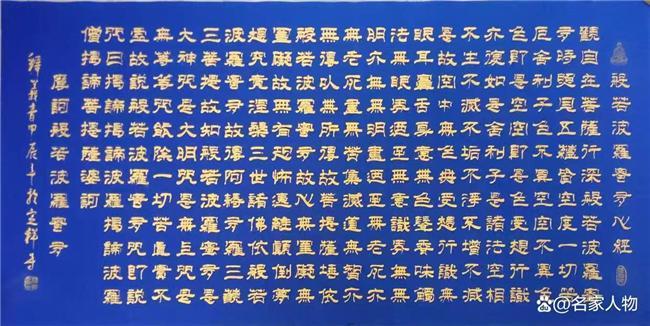 般若波羅蜜多心經
觀自在菩薩行深般若波羅蜜
多時照見五蘊皆空度一切苦
厄舍利子色不異空空不異色
色即是空空即是色受想行識
亦復如是舍利子是諸法空相
不生不滅不垢不淨不增不減
是故空中無色無受想行識無
眼耳鼻舌身意無色聲香味觸
法無眼界乃至無意識界無無
明亦無無明盡乃至無老死亦
無老死盡無苦集滅道無智亦
無得以無所得故菩提薩埵依
般若波羅蜜多故心無罣礙無
罣礙故無有恐怖遠離顛倒夢
想究竟涅槃三世諸佛依般若
波羅蜜多故得阿耨多羅三藐
三菩提故知般若波羅蜜多是
大神咒是大明咒是無上咒是
無等等咒能除一切苦真實不
虛故說般若波羅蜜多咒即說
咒曰揭諦揭諦波羅揭諦波羅
僧揭諦菩提薩婆訶
摩訶般若波羅蜜多
釋青甲辰年於寺
@名家人物